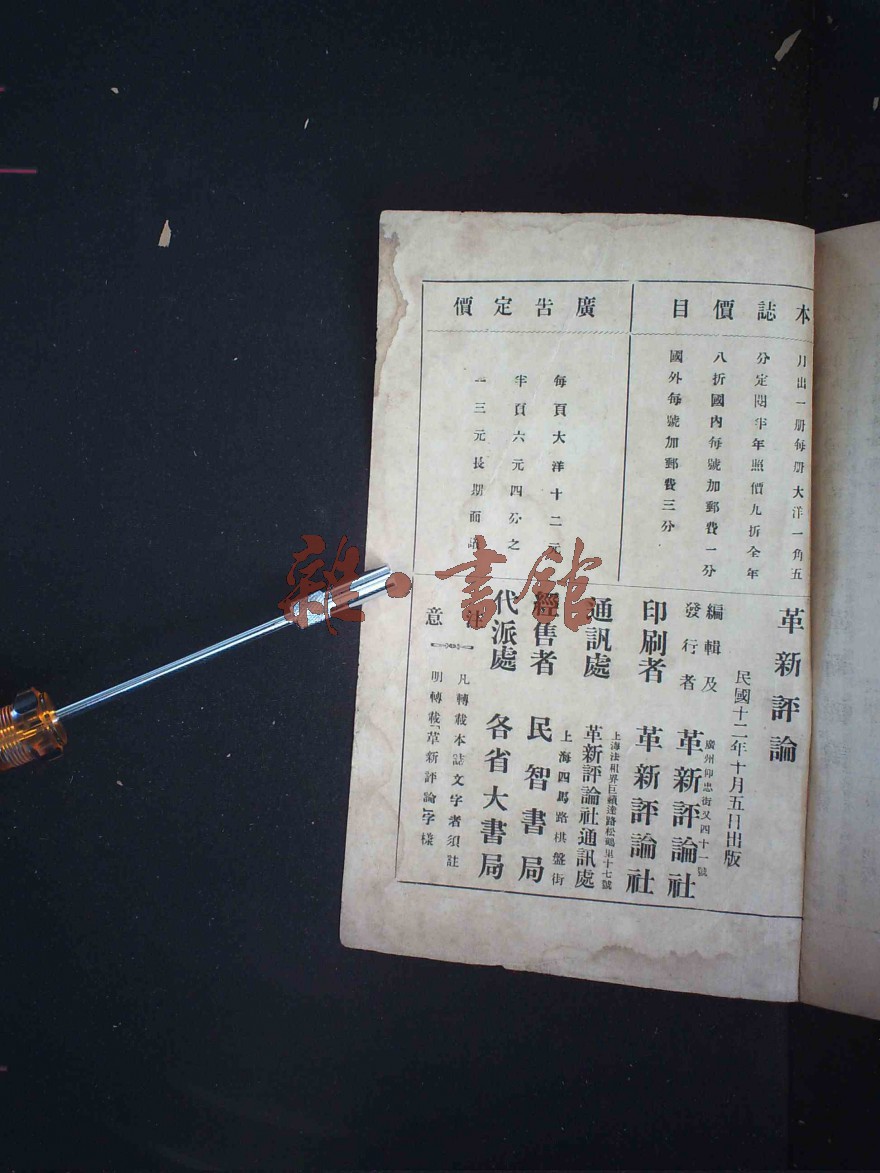 本誌價目
月出一册每册大洋一角五
分定閱半年照價九折全年
八折國內每號加郵費一分
國外每號加郵費三分
廣告定價
每頁大洋十二元
半頁六元四分之
一三元長期面議
革新評論
民國十二年十月五日出版
編輯及
發行者
廣州仰忠街又四十一號
革新評論社
印刷者
革新評論社
通訊處
上海法租界巨籟達路松鶴里十七號
革新評論社通訊處
經售者
上海四馬路棋盤街
民智書局
代派處
各省大書局
注意
凡轉載本誌文字者須註
明轉載「革新評論」字樣
雜·書館